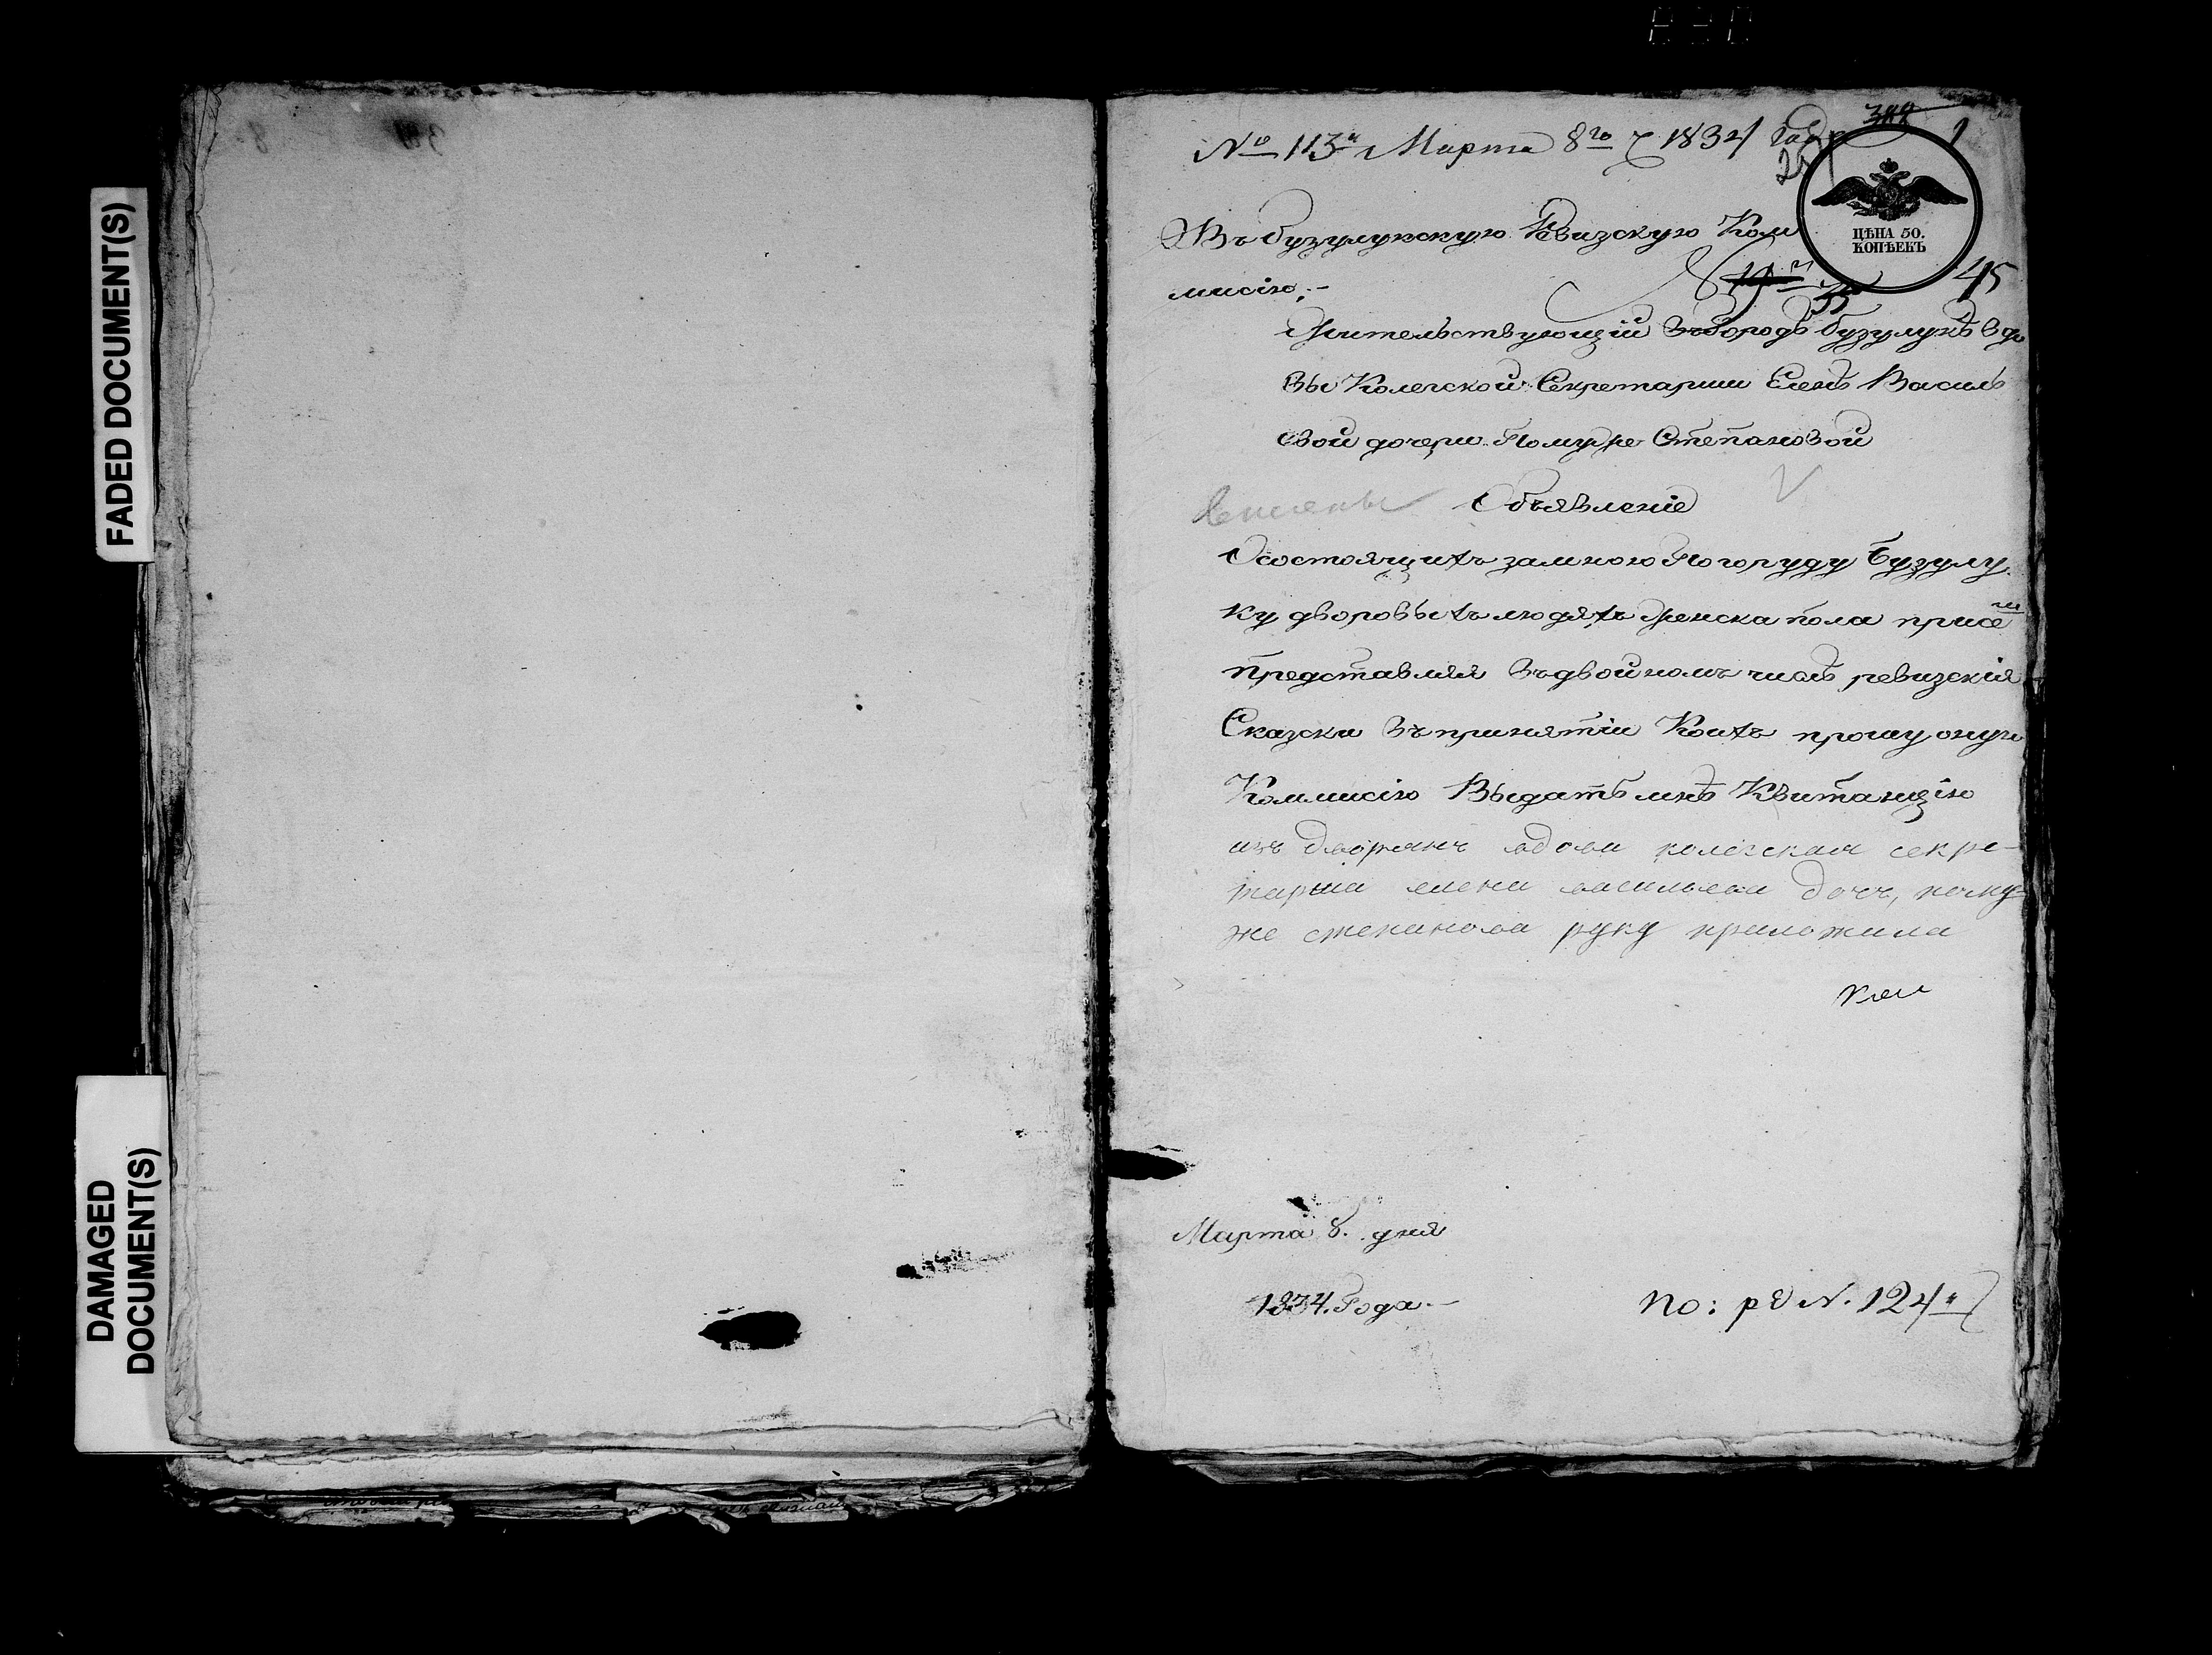 FADED DOCUMENT(S)
DAMAGED
DOCUMENT(S)
№ 113 Марта 8го 1834 года
1
ЦѢНА 50.
КОПѢЕКЪ
Въ бузулукскую Ревизскую Ком
мисію,-
45
Жительствующій въ городѣ бузулукѣ вдо
вы Колегской Секретарши Еленѣ Василь
евой дочери Помуже Степановой
Объявленіе
О состоящихъ за мною По городу Бузулу
ку дворовыхъ людяхъ женска пола при семъ
представляя въ двойномъ числѣ ревизскія
Сказски въ принятіи Коихъ прошу оную
Коммисію Выдать мнѣ Квитанцію
изъ дворянъ вдова колегская секре-
тарша елена васильева дочь, помy
же степанова руку приложила
Марта 8. дня
1834. Года.-
по: р N. 124